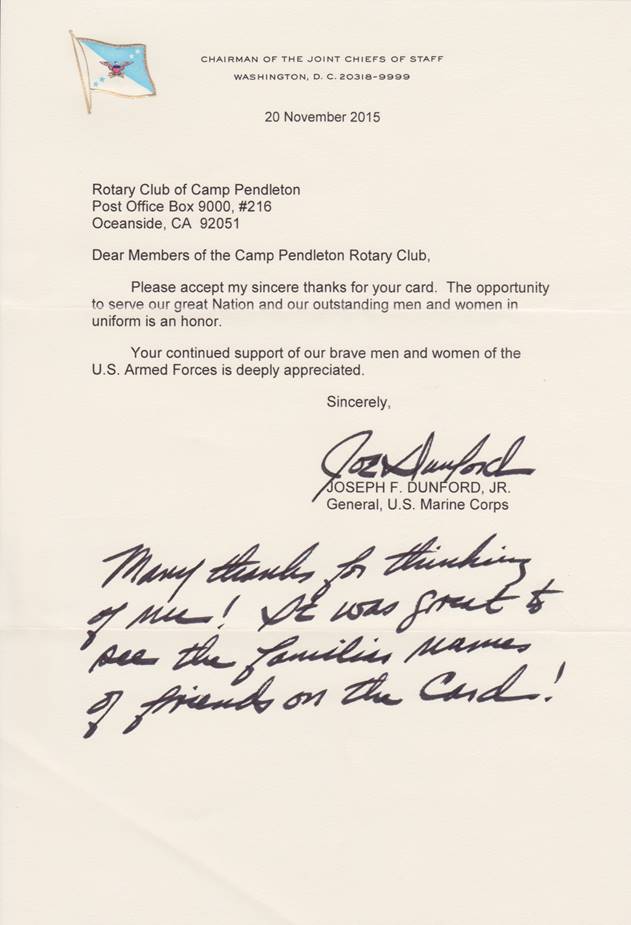 CHAIRMAN OF THE JOINT CHIEFS OF STAFF
WASHINGTON, D. C. 20318-9999
20 November 2015
Rotary Club of Camp Pendleton
Post Office Box 9000, #216
Oceanside, CA 92051
Dear Members of the Camp Pendleton Rotary Club,
Please accept my sincere thanks for your card. The opportunity
to serve our great Nation and our outstanding men and women in
uniform is an honor.
Your continued support of our brave men and women of the
U.S. Armed Forces is deeply appreciated.
Sincerely,
Joe Dunford
JOSEPH F. DUNFORD, JR.
General, U.S. Marine Corps
Many thanks for thinking
of me! It was great to
see the families names
of friends on the Card!